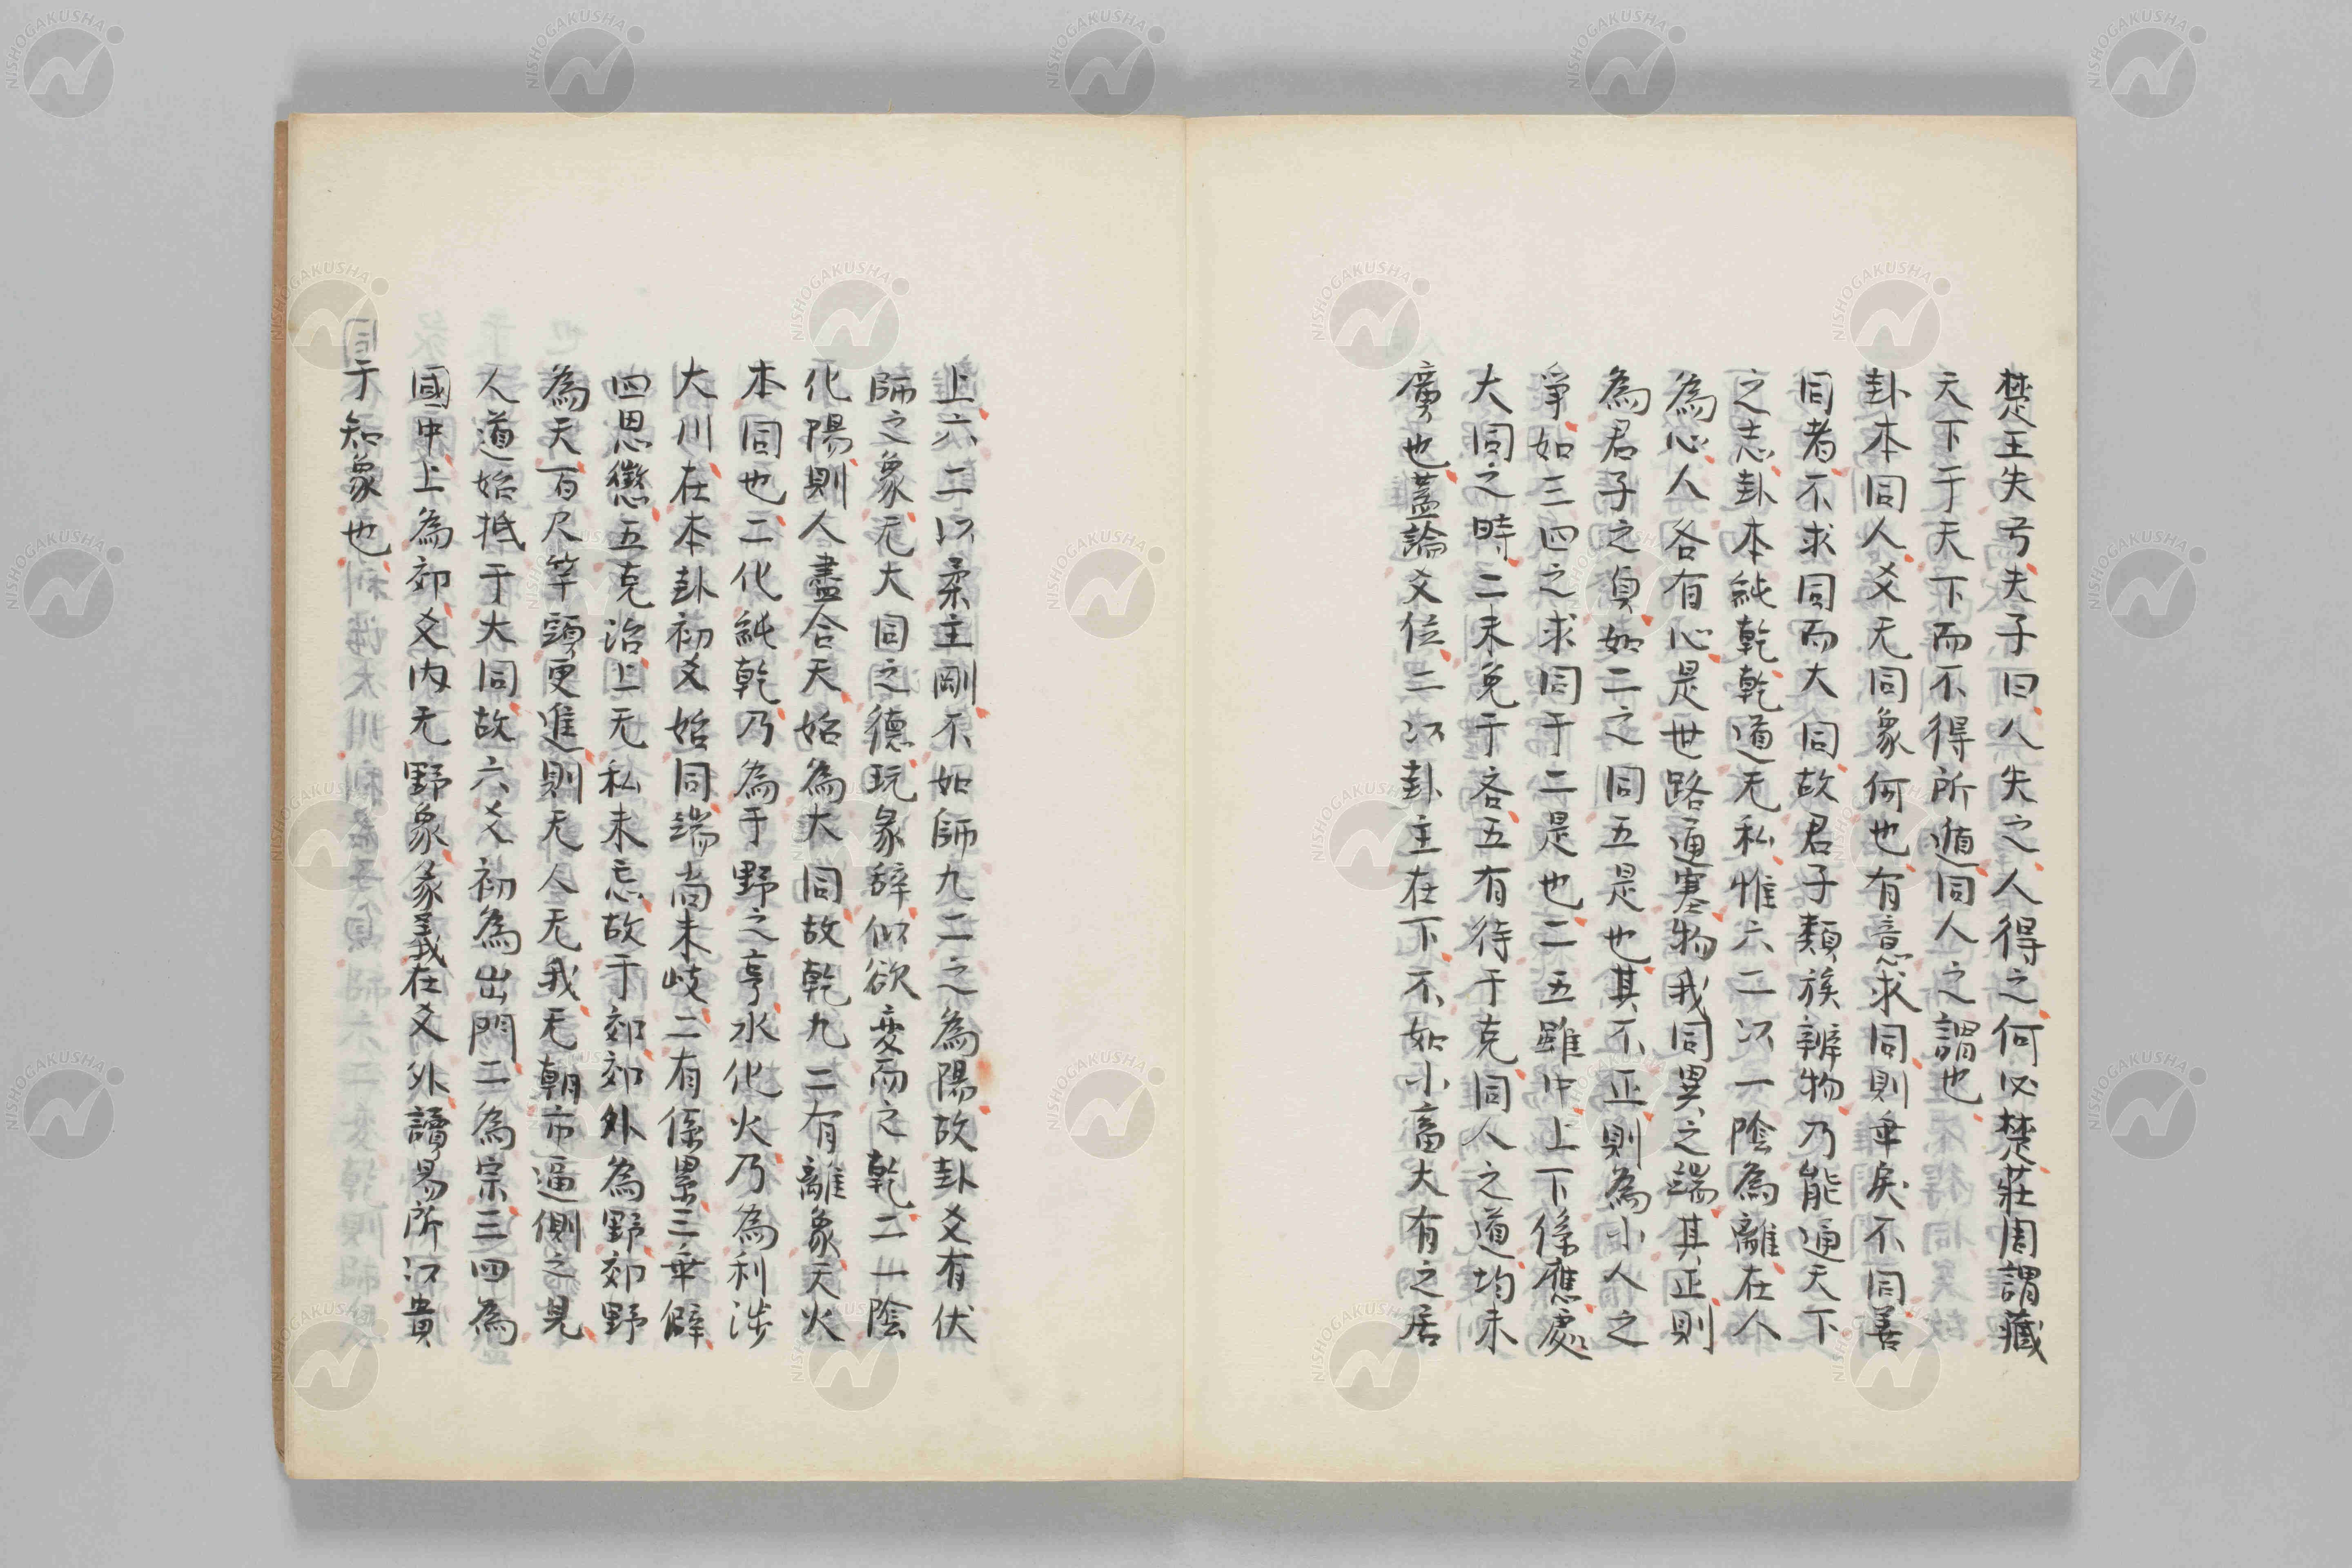 楚王失弓夫子曰人失之人得之何必楚莊周謂藏
天下于天下而不得所遁同人之謂也
卦本同人爻无同象何也有意求同則乖矣不同善
同者不求同而大同故君子類族辨物乃能通天下
之志卦本純乾乾道无私惟六二以一陰為離在人
為心人各有心是世路通塞物我同異之端其正則
為君子之貞如二之同五是也其不正則為小人之
爭如三四之求同于二是也二五雖中上下係應處
大同之時二未免于吝五有待于克同人之道均未
廣也蓋論爻位二以卦主在下不如小畜大有之居
上六二以柔主剛不如師九二之為陽故卦爻有伏
師之象无大同之德玩彖辭似欲変而之乾二一陰
化陽則人盡合天始為大同故乾九二有離象天火
本同也二化純乾乃為于野之亨水化火乃為利涉
大川在本卦初爻始同端尚未岐二有係累三乖僻
四思懲五克治上无私未忘故于郊郊外為野郊野
為天百尺竿頭更進則无人无我无朝市逼側之見
人道始抵于大同故六爻初為出門二為宗三四為
國中上為郊爻内无野象彖義在爻外讀易所以貴
于知象也
NISHOGAKUSHA